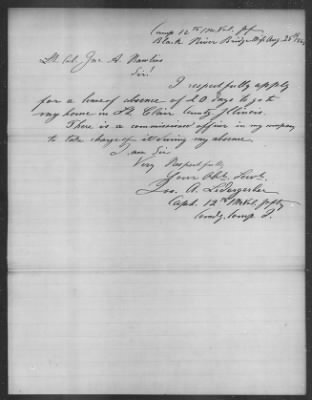 Camp 12th Mo. Vol. Inf.
Black River Bridge Miss Aug 25th
Lt. Col. Jno. A. Rawlins
Sir!
I respectfully apply
for a leave of absence of 20 days to go to
my home in St. Clair County Illinois.
There is a commissioned officer in my company
to take charge of it during my absence
I am Sir
Very Respectfully
Your Obt. Servt.
A. Ledergerber
Capt. 12th Mo. Vol. Infty
Comdg. Comp.